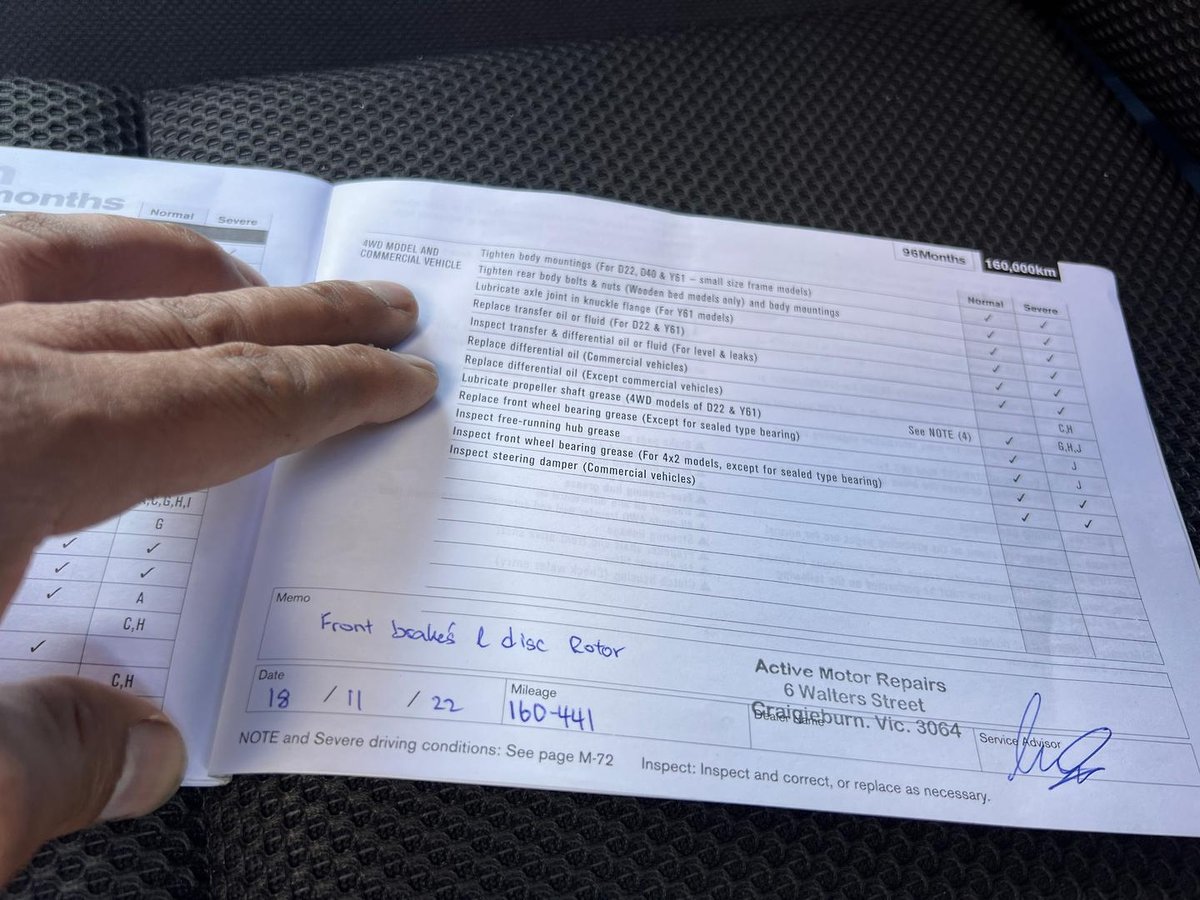 months
Normal Severe
C,G,H,I
G
✓ ✓
✓ ✓
✓ A
C,H
✓
C,H
96Months 160,000km
Normal Severe
4WD MODEL AND
COMMERCIAL VEHICLE
Tighten body mountings (For D22, D40 & Y61 – small size frame models) ✓ ✓
Tighten rear body bolts & nuts (Wooden bed models only) and body mountings ✓ ✓
Lubricate axle joint in knuckle flange (For Y61 models) ✓ ✓
Replace transfer oil or fluid (For D22 & Y61) ✓ ✓
Inspect transfer & differential oil or fluid (For level & leaks) ✓ ✓
Replace differential oil (Commercial vehicles) ✓ ✓
Replace differential oil (Except commercial vehicles) C,H
Lubricate propeller shaft grease (4WD models of D22 & Y61) See NOTE (4) ✓ G,H,J
Replace front wheel bearing grease (Except for sealed type bearing) ✓ J
Inspect free-running hub grease ✓ J
Inspect front wheel bearing grease (For 4x2 models, except for sealed type bearing) ✓ ✓
Inspect steering damper (Commercial vehicles) ✓ ✓
Memo
Front brakes & disc Rotor
Active Motor Repairs
6 Walters Street
Craigieburn. Vic. 3064
Date
18 / 11 / 22
Mileage
160-441
Dealer Name
Service Advisor
NOTE and Severe driving conditions: See page M-72
Inspect: Inspect and correct, or replace as necessary.